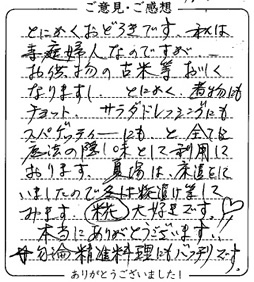 ご意見・ご感想
とにかくおどろきです。私は
専業婦人なのですが
お供物の古米等おいしく
なりますし、とにかく、煮物にも
チョット、サラダドレッシングにも
スパゲッティーにもと全てに
魔法の隠し味として利用して
おります。夏場は、床漬として
いましたので冬は糀漬け等して
みます。糀大好きです。♡
本当にありがとうございます。
勿論精進料理にもバッチリです。
ありがとうございました!